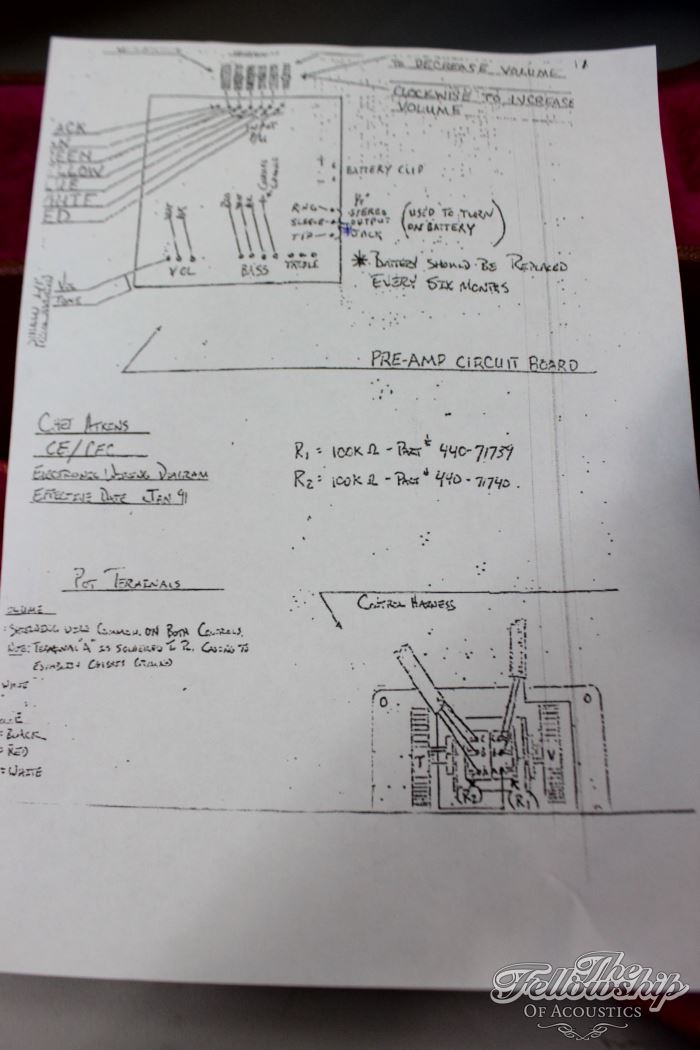 TO DECREASE VOLUME
CLOCKWISE TO INCREASE
VOLUME
ACK
EEN
LLOW
UE
HITE
ED
BATTERY CLIP
RING
SLEEVE
TIP
1/4"
STEREO
OUTPUT
JACK
(USED TO TURN
ON BATTERY)
VOL
BASS
TREBLE
* BATTERY SHOULD BE REPLACED
EVERY SIX MONTHS
VOL
TONE
PRE-AMP CIRCUIT BOARD
CHET ATKENS
CE/CEC
ELECTRONIC WIRING DIAGRAM
EFFECTIVE DATE JAN 91
R1 = 100K Ω - PART # 440-71739
R2 = 100K Ω - PART # 440-71740
POT TERMINALS
OLUME
= SHIELDING WIRE COMMON ON BOTH CONTROLS.
NOTE: TERMINAL "A" IS SOLDERED TO R2 CASING TO
ESTABLISH CHASSIS GROUND
WHITE
= BLACK
= RED
= WHITE
CONTROL HARNESS
T
V
R2
R1
The
Fellowship
OF ACOUSTICS